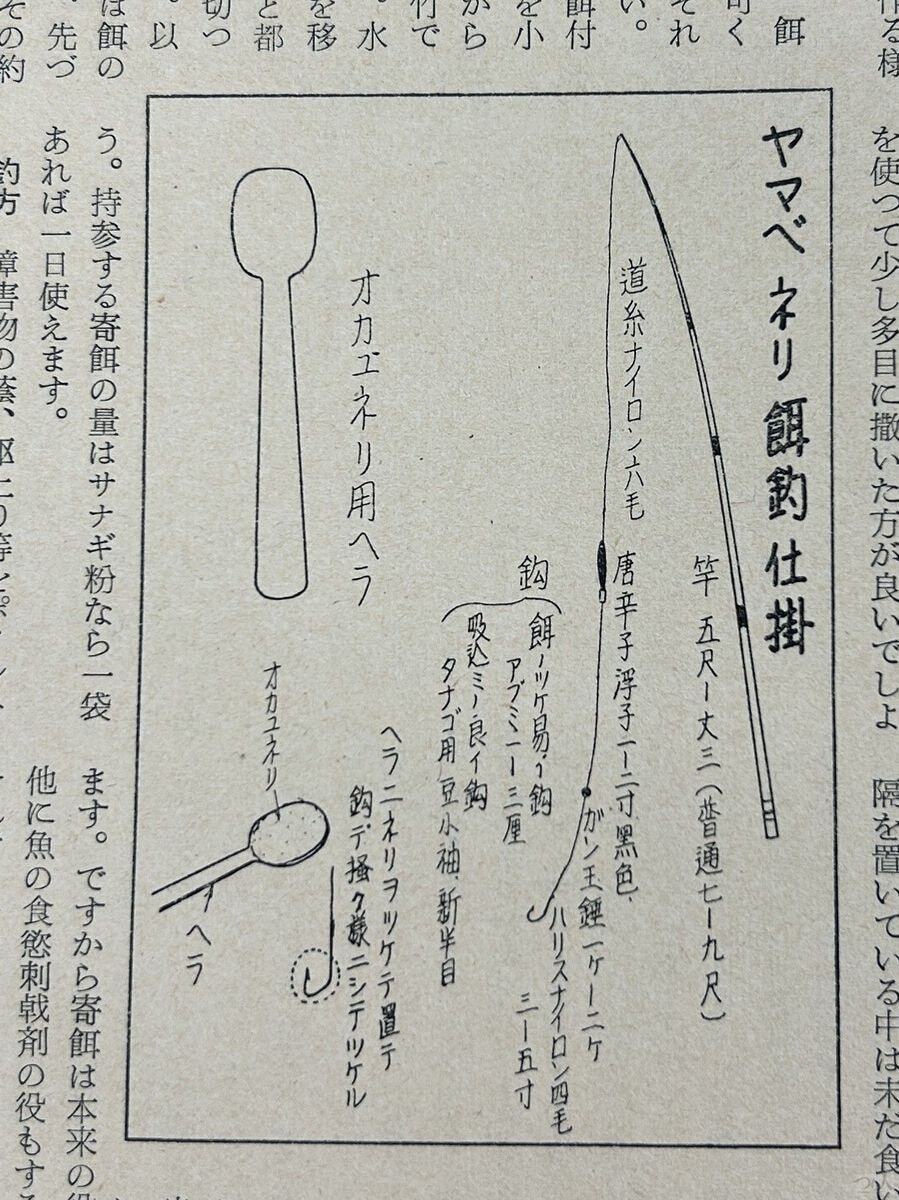 作る様
を使つて少し多目に撒いた方が良いでしよ
隔を置いている中は未だ食い
ヤマベネリ餌釣仕掛
竿 五尺ー丈三(普通七ー九尺)
道糸ナイロン六毛
唐辛子浮子一ー二寸黒色
ガン玉錘一ケー二ケ
ハリスナイロン四毛
三ー五寸
鈎
餌ノツケ易イ鈎
アブミ一ー三厘
吸込ミノ良イ鈎
タナゴ用 豆小袖 新半目
ヘラニネリヲツケテ置テ
鈎デ掻ク様ニシテツケル
オカユネリ用ヘラ
オカユネリ
ヘラ
餌
可く
それ
い。
餌付
を小
から
竹で
。水
を移
と都
切つ
。以
は餌の
。先づ
その約
う。持参する寄餌の量はサナギ粉なら一袋
あれば一日使えます。
釣方
ます。ですから寄餌は本来の役
他に魚の食慾刺戟剤の役もする